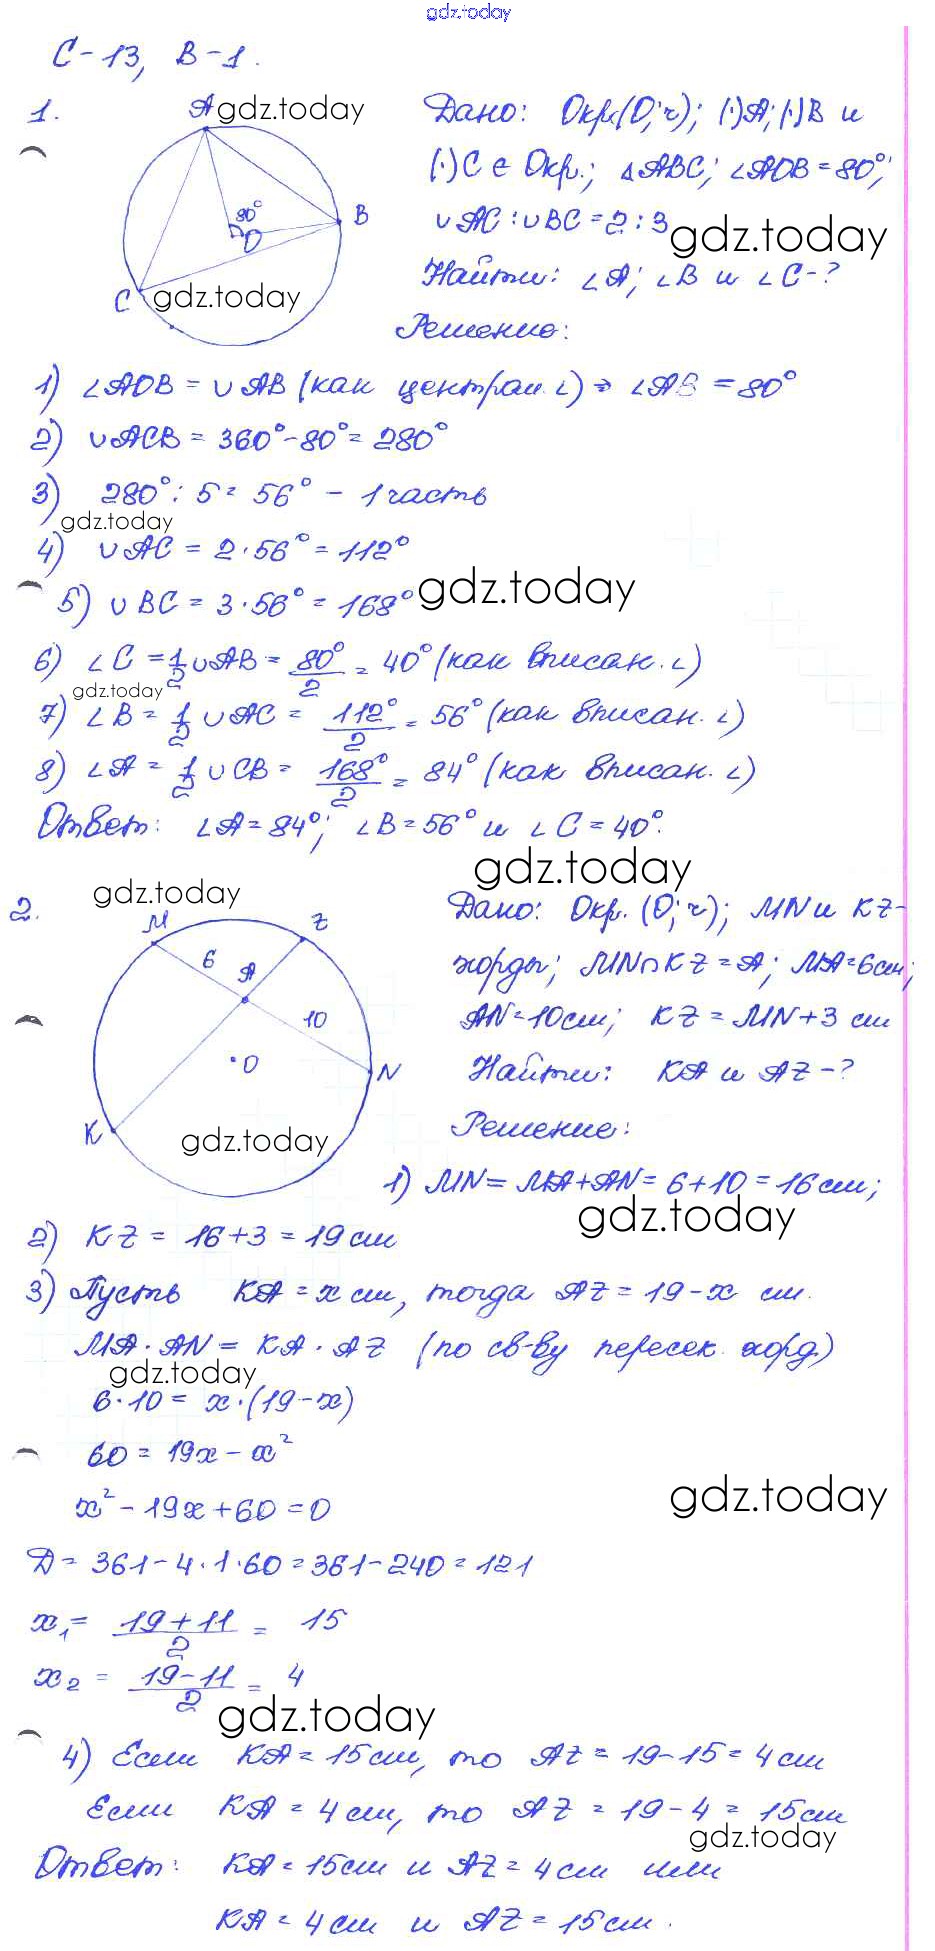 gdz.today
С-13, В-1.
1.
A gdz.today
80°
O
B
C gdz.today
Дано: Окр.(O; r); (·)A; (·)B и
(·)C ∈ Окр.; △ABC; ∠AOB = 80°;
∪AC : ∪BC = 2 : 3
gdz.today
Найти: ∠A; ∠B и ∠C - ?
Решение:
1) ∠AOB = ∪AB (как централ. ∠) ⇒ ∠AB = 80°
2) ∪ACB = 360° - 80° = 280°
3) 280° : 5 = 56° - 1 часть
gdz.today
4) ∪AC = 2·56° = 112°
5) ∪BC = 3·56° = 168°
gdz.today
6) ∠C = 1/2 ∪AB = 80°/2 = 40° (как вписан. ∠)
gdz.today
7) ∠B = 1/2 ∪AC = 112°/2 = 56° (как вписан. ∠)
8) ∠A = 1/2 ∪CB = 168°/2 = 84° (как вписан. ∠)
Ответ: ∠A = 84°; ∠B = 56° и ∠C = 40°.
gdz.today
gdz.today
2.
M
Z
6
A
10
O
N
K
gdz.today
Дано: Окр. (O; r); MN и KZ-
хорды; MN∩KZ = A; MA = 6см;
AN = 10см; KZ = MN + 3 см
Найти: KA и AZ - ?
Решение:
1) MN = MA + AN = 6 + 10 = 16 см;
gdz.today
2) KZ = 16 + 3 = 19 см
3) Пусть KA = x см, тогда AZ = 19 - x см.
MA · AN = KA · AZ (по св-ву пересек. хорд)
gdz.today
6·10 = x·(19 - x)
60 = 19x - x²
gdz.today
x² - 19x + 60 = 0
Д = 361 - 4·1·60 = 361 - 240 = 121
x₁ = (19 + 11)/2 = 15
x₂ = (19 - 11)/2 = 4
gdz.today
4) Если KA = 15 см, то AZ = 19 - 15 = 4 см
Если KA = 4 см, то AZ = 19 - 4 = 15 см
gdz.today
Ответ: KA = 15 см и AZ = 4 см или
KA = 4 см и AZ = 15 см.